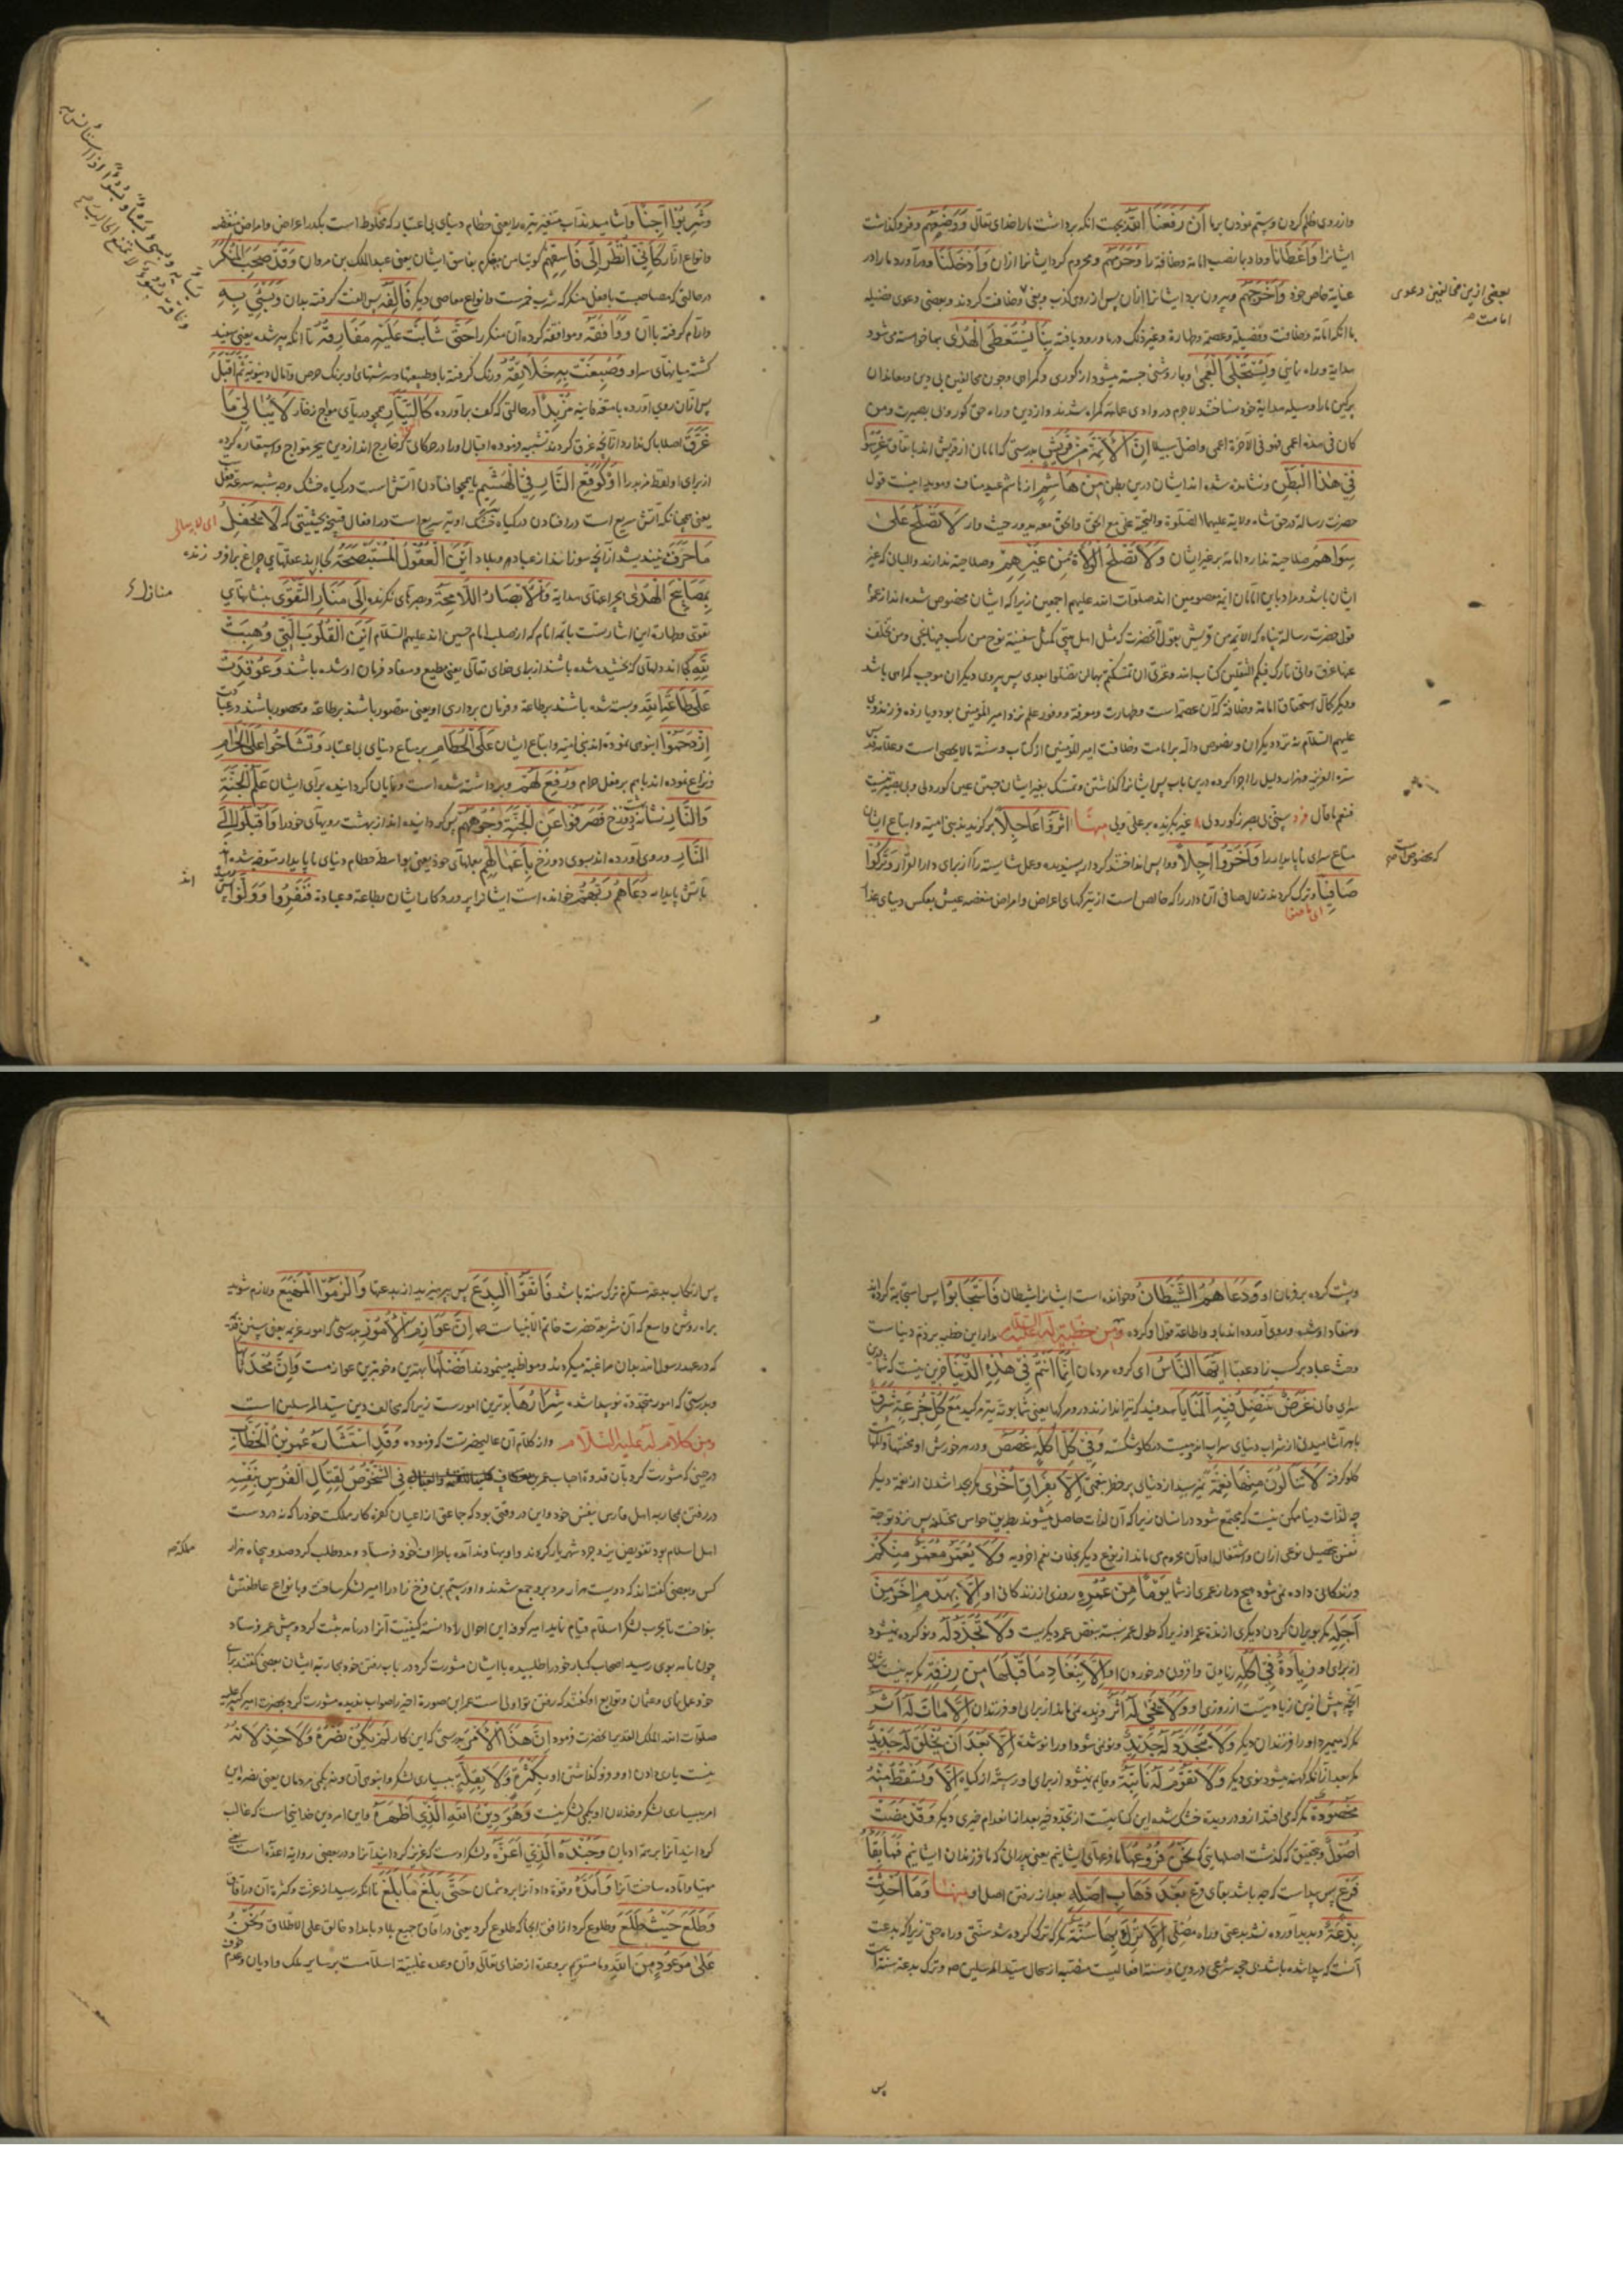 وازروی ظلم کردن وستم نمودن برما اَنْ رَفَعَنَا اللهُ بجهت آنکه برداشت ما را خدای تعالی وَوَضَعَهُمْ وفرو گذاشت
ایشانرا وَاَعْطَانَا وداد بما نصب امامة وخلافة را وَحَرَمَهُمْ ومحروم کرد ایشانرا ازان وَاَدْخَلَنَا ودرآورد ما را در
عنایة خاص خود وَاَخْرَجَهُمْ وبیرون برد ایشانرا ازان پس از روی کذب وبغی وخلافت کردند وبعضی دعوی فضیله
بعضی ازین مخالفین دعوی
امامت
با آنکه امامة وخلافت وفضیلة وعصمة وطهارة وغیر ذلک درما ورود یافته بِنَا یُسْتَعْطَی الْهُدٰی بما خواسته می شود
هدایة وراه یافتن وَیُسْتَجْلَی الْعَمٰی وبما روشنی جسته میشود از کوری وکمراهی وچون مخالفین بی دین ومعاندان
برکین ما را وسیله هدایة خود نساختند لاجرم در وادی عمایة کمراه شدند وازدین وراه حق کور ونابی بصیرت ومن
کان فی هذه اعمی فهو فی الآخرة اعمی واضل سبیلا اِنَّ الْاَئِمَّةَ مِنْ قُرَیْشٍ بدرستی که امامان از قریش اند باتفاق غُرِسُوا
فِی هٰذَا الْبَطْنِ ونشانده شده اند ایشان درین بطن مِنْ هَاشِمٍ از هاشم عبد مناف ومؤید اینست قول
حضرت رسالة در حق شاه ولایة علیهما الصلوة والتحیة علی مع الحق والحق معه یدور حیث دار لَا تَصْلُحُ عَلٰی
سِوَاهُمْ صلاحیة ندارد امامة بر غیر ایشان وَلَا تَصْلُحُ الْوُلَاةُ مِنْ غَیْرِهِمْ وصلاحیة ندارند والیان که غیر
ایشان باشند ومراد باین امامان ائمه معصومین اند صلوات الله علیهم اجمعین زیرا که ایشان مخصوص شده اند از عموم
قول حضرت رسالة پناه که الائمة من قریش بقول آنحضرت که مثل اهل بیتی کمثل سفینة نوح من رکب فیها نجی ومن تخلف
عنها غرق وانی تارک فیکم الثقلین کتاب الله وعترتی ان تمسکتم بهما لن تضلوا بعدی پس پیروی دیکران موجب کمراهی باشد
ودیکر کمال استحقاق امامة وخلافة که آن عصمة است وطهارت ومعرفة ووفور علم نزد امیر المؤمنین بود ویازده فرزند وی
علیهم السلام نه نزد دیکران ونصوص داله بر امامت وخلافت امیر المؤمنین از کتاب وسنة مالا یحصی است وعلامه قدس
سره العزیز دو هزار دلیل را اجرا کرده درین باب پس ایشانرا کذاشتن وتمسک بغیر ایشان جستن عین کوردلی وبی بصیرتیست
که بخصوص
فنعم ما قال فرد سیتی بی بصر ز کوردلی ۸ غیر بکزیده بر علی ولی مِنْهَا اٰثَرُوا عَاجِلًا برکزیدند بنی امیه واتباع ایشان
متاع سرای ناپایدار را وَاَخَّرُوا اٰجِلًا وواپس انداختند کردار پسندیده وعمل شایسته را از برای دارالقرار وَتَرَکُوا
صَافِیًا وترک کردند زلال صافی آن دار را که خالص است از تیرکیهای اعراض وامراض منغصه عیش بعکس دنیای غدار
وَشَرِبُوا اٰجِنًا وآشامیدند آب متغیر تیره را یعنی حطام دنیای بی اعتبار که مخلوط است بکدر اعراض وامراض منغصه
وانواع اکدار کَاَنِّی اَنْظُرُ اِلٰی فَاسِقِهِمْ کوئیا من مینکرم بفاسق ایشان یعنی عبد الملک بن مروان وَقَدْ صَحِبَ الْمُنْکَرَ
در حالتی که مصاحبت با فعل منکر که شرب خمرست وانواع معاصی دیکر فَاَلِفَهُ پس الفت کرفته بدان وَبَسِئَ بِهِ
وآرام کرفته بآن وَوَافَقَهُ وموافقة کرده آن منکر را حَتّٰی شَابَتْ عَلَیْهِ مَفَارِقُهُ تا آنکه پیر شده یعنی سفید
کشته میانهای سر او وَصُبِغَتْ بِهِ خَلَائِقُهُ ورنک کرفته باو طبیعتها وسرشتهای او برنک حرص وآمال دنیویه ثُمَّ اَقْبَلَ
پس ازان روی آورده بامت محمد مُزْبِدًا در حالتی که کف برآورده کَالتَّیَّارِ همچو دریای مواج زخار لَا یُبَالِی مَا
غَرَّقَ اصلا باکی ندارد از آنچه غرق کردند
از برای او لفظ مزبد را اَوْ کَوَقْعِ النَّارِ فِی الْهَشِیمِ یا همچو افتادن آتش است در کیاه خشک وجه شبه سرعة فعل
یعنی همچنانکه آتش سریع است در افتادن در کیاه خشک او نیز سریع است در افعال قبیحه بحیثیتی که لَا یَحْفِلُ
ای لا یبالی
مَا حَرَّقَ نیندیشد از آنچه سوزانند از عباد وبلاد اَیْنَ الْعُقُولُ الْمُسْتَصْبِحَةُ کجا اند عقلهای چراغ برافروزنده
بِمَصَابِیحِ الْهُدٰی بچراغهای هدایة وَالْاَبْصَارُ اللَّامِحَةُ وبصرهای نکرنده اِلٰی مَنَارِ التَّقْوٰی بنشانهای
منازل
تقوی وطهارت این اشارتست بائمه انام که از صلب امام حسین اند علیهم السلام اَیْنَ الْقُلُوبُ الَّتِی وُهِبَتْ
لِلّٰهِ کجا اند دلهائی که بخشیده شده باشند از برای خدای تعالی یعنی مطیع ومنقاد فرمان او شده باشند وَعُوقِدَتْ
عَلٰی طَاعَةِ اللهِ وبسته شده باشند بر طاعة وفرمان برداری او یعنی مقصور باشند بر طاعة ومحصور باشند در عبادت
اِزْدَحَمُوا انبوهی نموده اند بنی امیه واتباع ایشان عَلَی الْحُطَامِ بر متاع دنیای بی اعتبار وَتَشَاحُّوا عَلَی الْحَرَامِ
ونزاع نموده اند باهم بر فعل حرام وَرُفِعَ لَهُمْ وبرداشته شده است ونمایان کردانیده برای ایشان عَلَمُ الْجَنَّةِ
وَالنَّارِ نشانه بهشت ودوزخ فَصَرَفُوا عَنِ الْجَنَّةِ وُجُوهَهُمْ پس کردانیده اند از بهشت رویهای خود را وَاَقْبَلُوا اِلَی
النَّارِ وروی آورده اند بسوی دوزخ بِاَعْمَالِهِمْ بعملهای خود یعنی بواسطه حطام دنیای ناپایدار متوجه شده اند
بآتش پایدار دَعَاهُمْ رَبُّهُمْ خوانده است ایشانرا پروردکار ایشان بطاعة وعبادة فَنَفَرُوا وَوَلَّوْا پس
وپشت کرده بر فرمان او وَدَعَاهُمُ الشَّیْطَانُ وخوانده است ایشانرا شیطان فَاسْتَجَابُوا پس استجابة کردند
ومنقاد او شده وروی آورده اند باو واطاعة قول او کرده وَمِنْ خُطْبَةٍ لَهُ عَلَیْهِ السَّلَامُ مدار این خطبه بر ذم دنیاست
وحث عباد بر کسب زاد عقبا اَیُّهَا النَّاسُ ای کروه مردمان اِنَّمَا اَنْتُمْ فِی هٰذِهِ الدُّنْیَا جز این نیست که شما درین
سرای فانی غَرَضٌ تَنْتَضِلُ فِیهِ الْمَنَایَا هدفید که تیر اندازند درو مرکها یعنی شما بوته تیر مرکید مَعَ کُلِّ جُرْعَةٍ شَرَقٌ
با هر آشامیدنی از شراب دنیای سراب اندوهیست در کلو شکسته وَفِی کُلِّ اُکْلَةٍ غُصَصٌ ودر هر خورش او محنتها والمها
کلو کرفته لَا تَنَالُونَ مِنْهَا نِعْمَةً نمیرسید از دنیای پر خطر بنعمتی اِلَّا بِفِرَاقِ اُخْرٰی مکر بجدا شدن از نعمة دیکر
چه لذات دنیا ممکن نیست که مجتمع شود در انسان زیرا که آن لذات حاصل میشوند بطریق حواس مختلفه پس نزد توجه
نفس بتحصیل نوعی ازان واشتغال او بآن محروم می ماند از نوع دیکر بخلاف نعم اخرویه وَلَا یُعَمَّرُ مُعَمَّرٌ مِنْکُمْ
وزندکانی داده نمی شود هیچ دراز عمری از شما یَوْمًا مِنْ عُمُرِهِ روزی از زندکانی او اِلَّا بِهَدْمِ اٰخَرَ مِنْ
اَجَلِهِ مکر بویران کردن دیکری از مدة عمر او زیرا که طول عمر بسته بنقص عمر دیکریست وَلَا تُجَدَّدُ لَهُ ونو کرده نمیشود
از برای او زِیَادَةٌ فِی اَکْلِهِ زیادتی وافزونی در خوردن او اِلَّا بِنَفَادِ مَا قَبْلَهَا مِنْ رِزْقِهِ مکر به نیست شدن
آنچه پیش ازین زیاده نیست از روزی او وَلَا یَحْیٰی لَهُ اَثَرٌ وزنده نمی ماند از برای او فرزندان اِلَّا مَاتَ لَهُ اَثَرٌ
مکر که میمیرد او را فرزندان دیکر وَلَا یَتَجَدَّدُ لَهُ جَدِیدٌ ونو نمی شود او را نوشته اِلَّا بَعْدَ اَنْ یَخْلَقَ لَهُ جَدِیدٌ
مکر بعد از آنکه کهنه میشود نوی دیکر وَلَا تَقُومُ لَهُ نَابِتَةٌ وقایم نمیشود از برای او رسته از کیاه اِلَّا وَتَسْقُطُ مِنْهُ
مَحْصُودَةٌ مکر که می افتد ازو درویده خشک شده این کنایتیست از تجدد چیز بعد از انعدام چیزی دیکر وَقَدْ مَضَتْ
اُصُولٌ وبتحقیق که کذشت اصلهائی که نَحْنُ فُرُوعُهَا ما فرعهای ایشانیم یعنی پدرانی که ما فرزندان ایشانیم فَمَا بَقَاءُ
فَرْعٍ پس چیست بقای فرع بَعْدَ ذَهَابِ اَصْلِهِ بعد از رفتن اصل او مِنْهَا وَمَا اُحْدِثَتْ
بِدْعَةٌ وپدید آورده نشد بدعتی وراه مضلی اِلَّا تُرِکَ بِهَا سُنَّةٌ مکر که ترک کرده شد سنتی وراه حقی زیرا که بدعت
آنست که پیدا شده باشد بی حجه شرعی در دین وسنة افعالیست مقتبه از حال سید المرسلین ص وترک بدعة سنة است
پس
پس ارتکاب بدعة مستلزم ترک سنة باشد فَاتَّقُوا الْبِدَعَ پس بپرهیزید از بدعتها وَالْزَمُوا الْمَهْیَعَ ولازم شوید
براه روشن واسع که آن شریعة حضرت خاتم الانبیاست ص اِنَّ عَوَازِمَ الْاُمُورِ بدرستی که امور عزیمه یعنی سنن قدیمه
که در عهد رسول الله بدان مراغبة میکردند ومواظبة مینمودند اَفْضَلُهَا بهترین وخوبترین عوازمست وَاِنَّ مُحْدَثَاتِهَا
وبدرستی که امور متجدده نو پیدا شده شِرَارُهَا بدترین امورست زیرا که مخالف دین سید المرسلین است
وَمِنْ کَلَامٍ لَهُ عَلَیْهِ السَّلَامُ واز کلام آن عالیحضرتست که فرموده وَقَدِ اسْتَشَارَهُ عُمَرُ بْنُ الْخَطَّابِ
در حینی که مشورت کرد بآن قدوة احباب عمر بن خطاب فِی الشُّخُوصِ لِقِتَالِ الْفُرْسِ بِنَفْسِهِ
در رفتن بمحاربه اهل فارس بنفس خود واین در وقتی بود که جماعتی از اعیان کفره کار مملکت خود را که نه در دست
اهل اسلام بود تفویض یزدجرد شهریار کردند واو بنهاوند آمده باطراف خود فرستاد ومدد طلب کرد صد وپنجاه هزار
کس وبعضی کفته اند که دویست هزار مرد برو جمع شدند واو رستم بن فرخ زاد را امیر لشکر ساخت وبانواع عاطفتش
بنواخت تا بحرب لشکر اسلام قیام نماید امیر کوفه این احوال را دانسته کیفیت آنرا در نامه ثبت کرد وپیش عمر فرستاد
چون نامه بوی رسید اصحاب کبار خود را طلبیده با ایشان مشورت کرد در باب رفتن خود بمحاربه ایشان بعضی کفتند برای
صلوات الله الملک القدیر آنحضرت فرمود اِنَّ هٰذَا الْاَمْرَ بدرستی که این کار لَمْ یَکُنْ نَصْرُهُ وَلَا خِذْلَانُهُ
نیست یاری دادن او وفرو کذاشتن او بِکَثْرَةٍ وَلَا بِقِلَّةٍ ببسیاری لشکر وانبوهی آن ونه بکمی مردمان یعنی نصرة این
امر ببسیاری لشکر وخذلان او بکمی لشکر نیست وَهُوَ دِینُ اللهِ الَّذِی اَظْهَرَهُ واین امر دین خدائی است که غالب
کردانید آنرا بر همه ادیان وَجُنْدُهُ الَّذِی اَعَزَّهُ ولشکر اوست که عزیز کردانید آنرا ودر بعضی روایة اعده است یعنی
مهیا وآماده ساخت آنرا وَاَمَدَّهُ وقوة داد آنرا بر دشمنان حَتّٰی بَلَغَ مَا بَلَغَ تا آنکه رسید از عزت وکثرة آن در آفاق
وَطَلَعَ حَیْثُ طَلَعَ وطلوع کرد از افق آنجا که طلوع کرد یعنی در آفاق جمیع بلاد بامداد خالق علی الاطلاق وَنَحْنُ
عَلٰی مَوْعُودٍ مِنَ اللهِ وما مستقریم بر وعده از خدای تعالی وآن وعده غلبه اسلامست بر سایر ملک وادیان